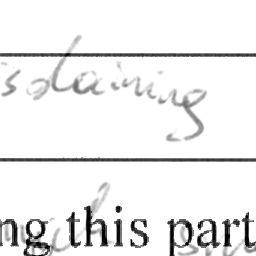 sdaining
ng this part